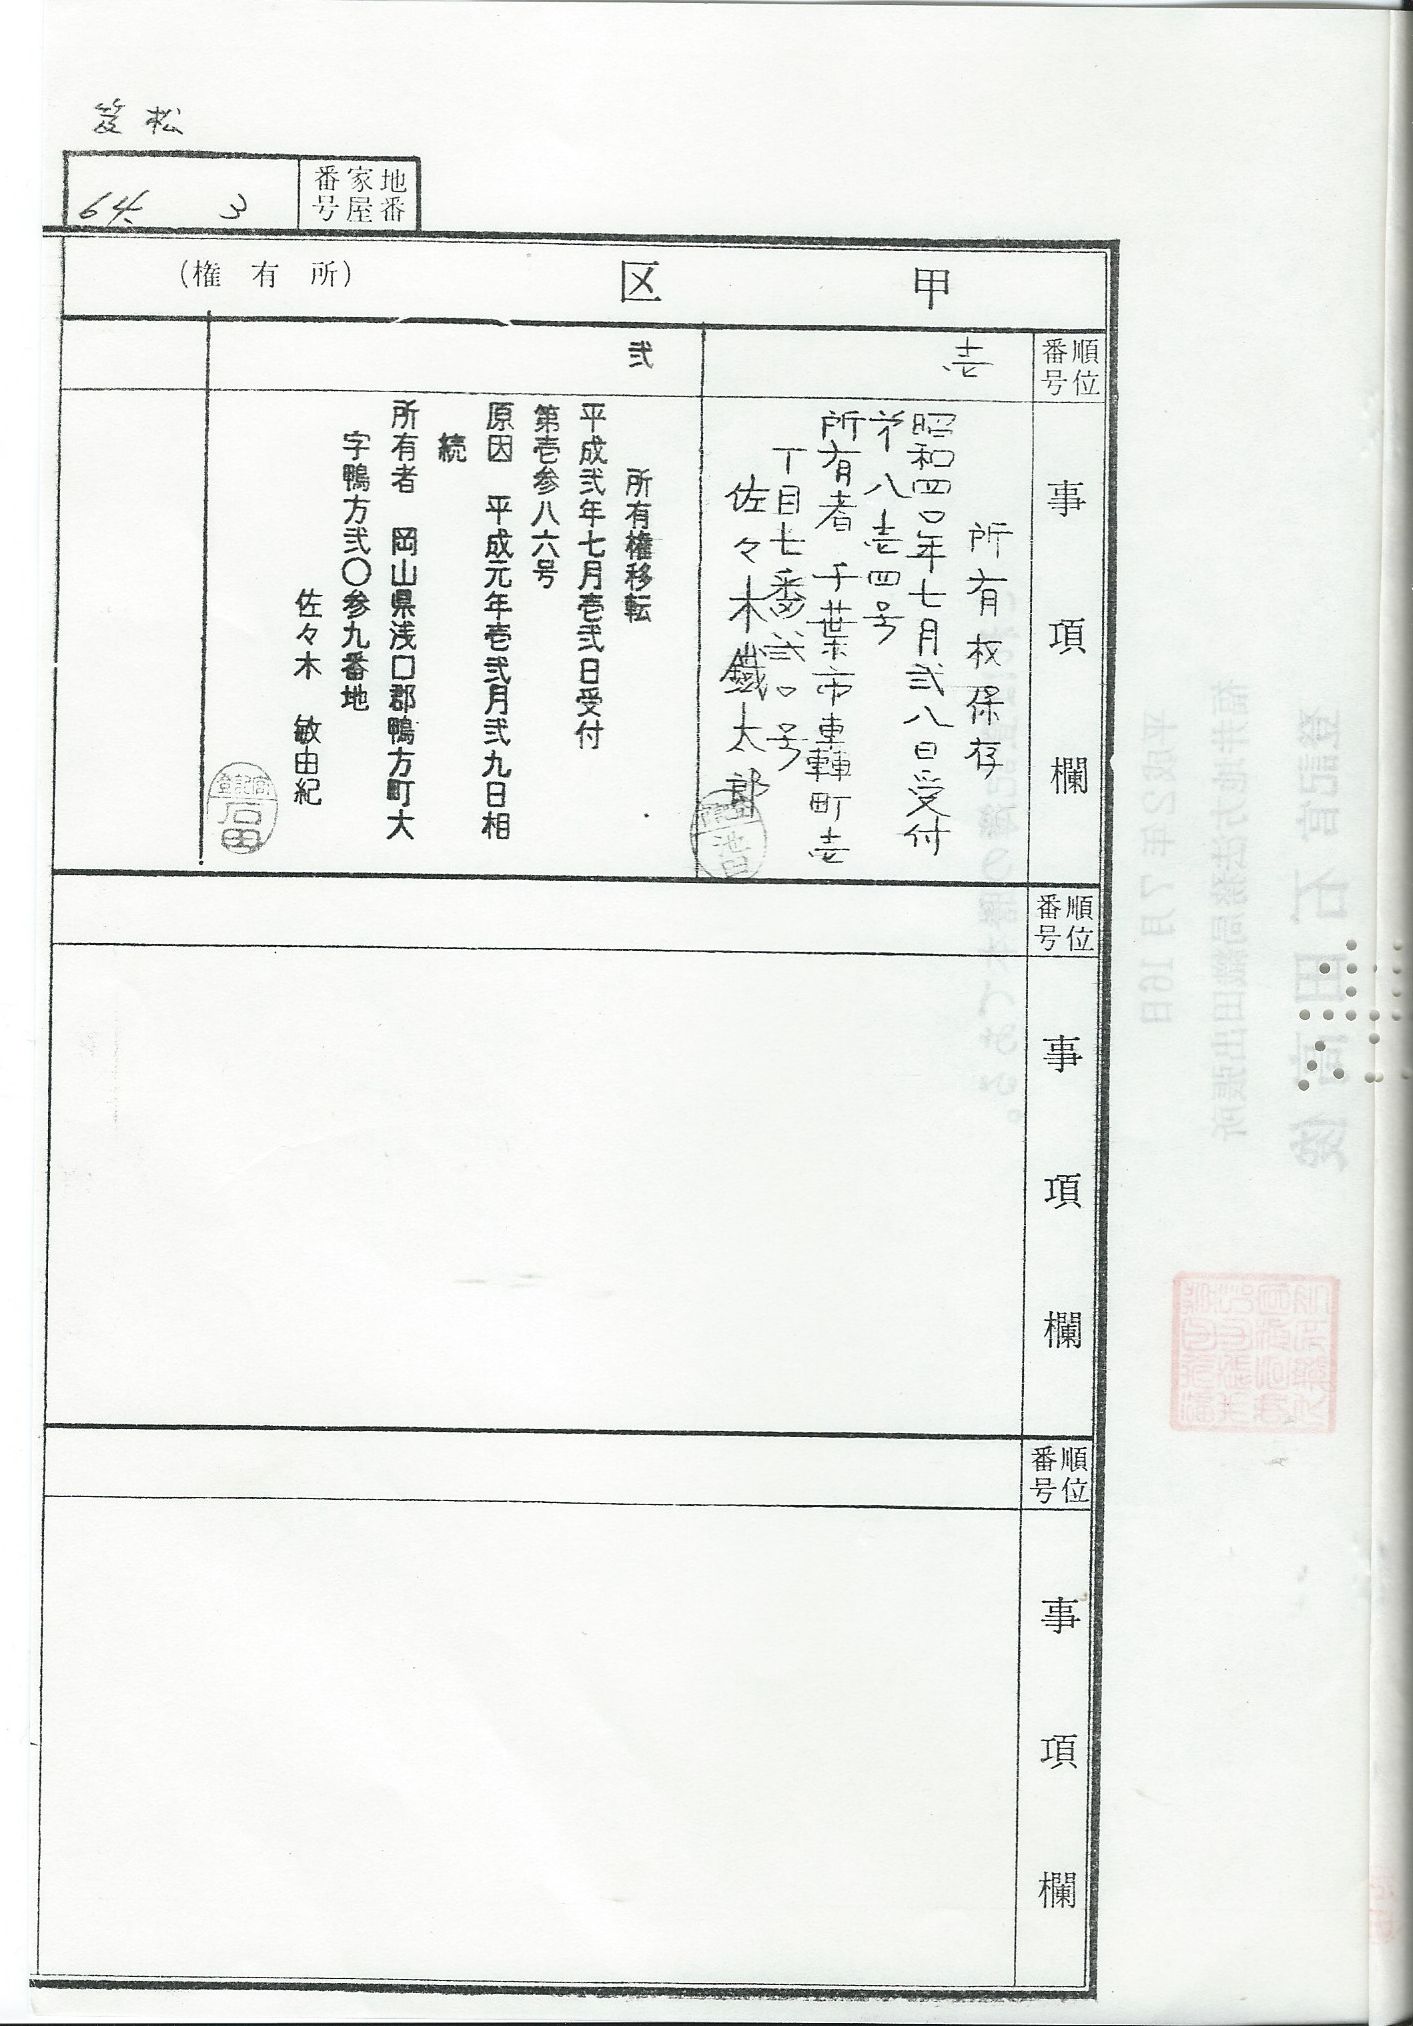 松
地番
家屋
番号
64
3
甲
区
(所有権)
順位
番号
事項欄
壱
所有权保存
昭和四〇年七月弐八日受付
第八壱四号
所有者 千葉市車轉町壱
丁目七番弐〇号
佐々木鐵太郎
池田
弐
所有権移転
平成弐年七月壱弐日受付
第壱参八六号
原因 平成元年壱弐月弐九日相
続
所有者 岡山県浅口郡鴨方町大
字鴨方弐〇参九番地
佐々木 敏由紀
登記官
石田
順位
番号
事項欄
順位
番号
事項欄